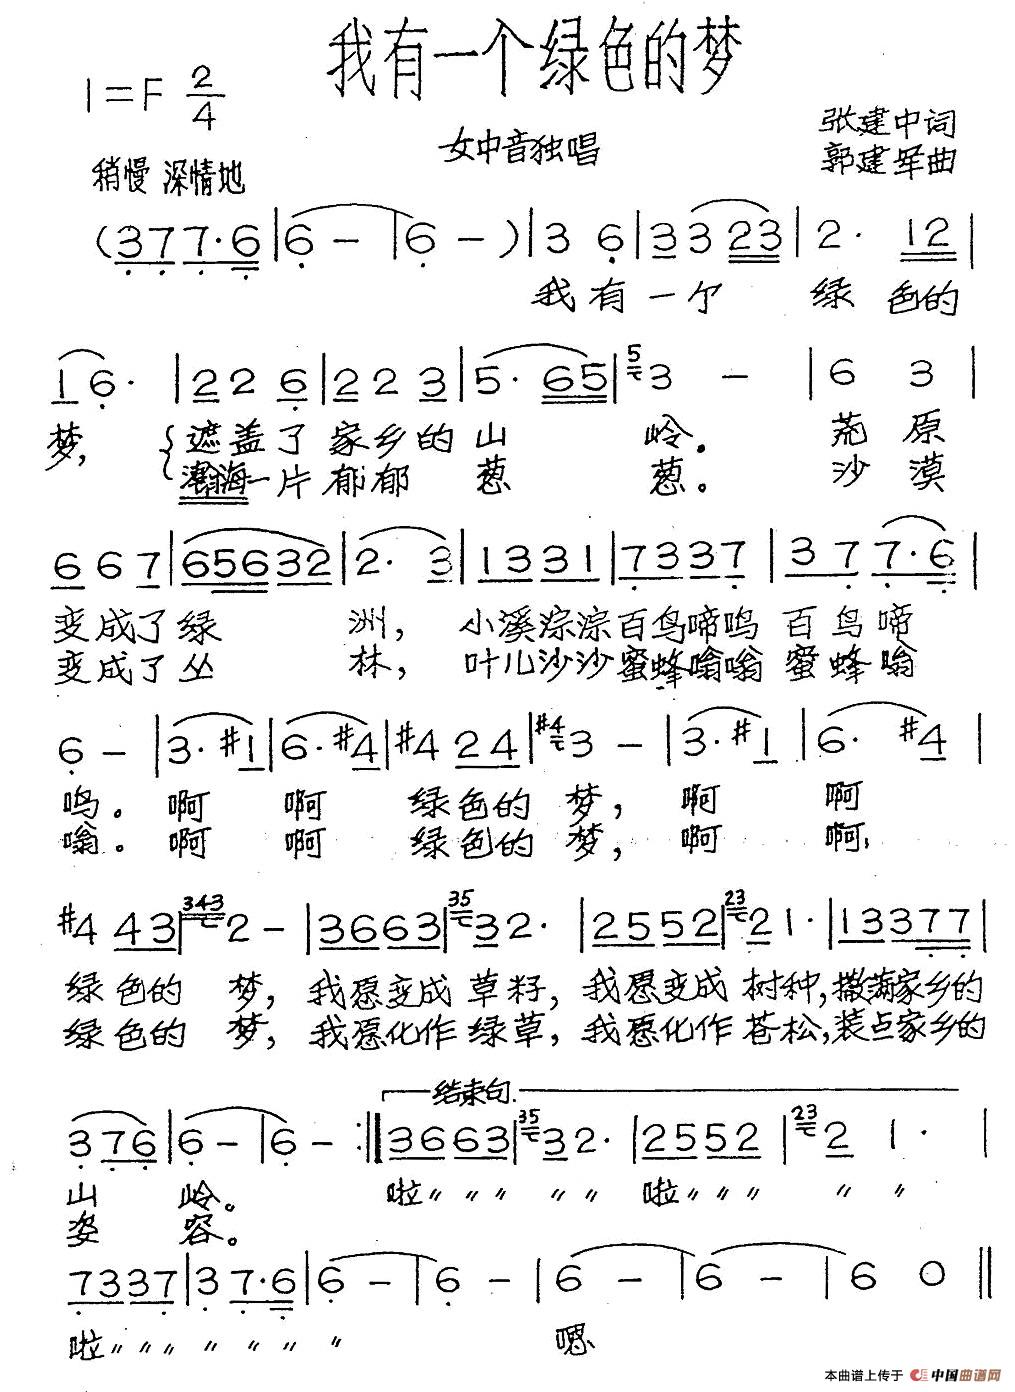 我有一个绿色的梦
1=F 2/4
女中音独唱
张建中词
郭建军曲
稍慢 深情地
(3 7 7·6 | 6 － | 6 － ) | 3 6 | 3 3 2 3 | 2· 1 2 |
我有一个 绿色的
1 6· | 2 2 6 | 2 2 3 | 5· 6 5 | 5 3 － | 6 3 |
梦, 遮盖了家乡的山 岭。 荒原
瀚海一片郁郁 葱 葱。 沙漠
6 6 7 | 6 5 6 3 2 | 2· 3 | 1 3 3 1 | 7 3 3 7 | 3 7 7·6 |
变成了绿 洲, 小溪淙淙百鸟啼鸣 百鸟啼
变成了丛 林, 叶儿沙沙蜜蜂嗡嗡 蜜蜂嗡
6 － | 3· #1 | 6· #4 | #4 2 4 | #4 3 － | 3· #1 | 6· #4 |
鸣。啊 啊 绿色的 梦, 啊 啊
嗡。啊 啊 绿色的 梦, 啊 啊,
#4 4 3 | 343 2 － | 3 6 6 3 | 35 3 2· | 2 5 5 2 | 23 2 1· | 1 3 3 7 7 |
绿色的 梦, 我愿变成 草籽, 我愿变成 树种, 撒满家乡的
绿色的 梦, 我愿化作 绿草, 我愿化作 苍松, 装点家乡的
结束句.
3 7 6 | 6 － | 6 － :‖ 3 6 6 3 | 35 3 2· | 2 5 5 2 | 23 2 1· |
山 岭。 啦〃 〃 〃 〃 〃 啦〃 〃 〃 〃 〃
姿 容。
7 3 3 7 | 3 7·6 | 6 － | 6 － | 6 － | 6 － | 6 0 ‖
啦〃 〃 〃 〃 〃 〃 嗯
本曲谱上传于 中国曲谱网